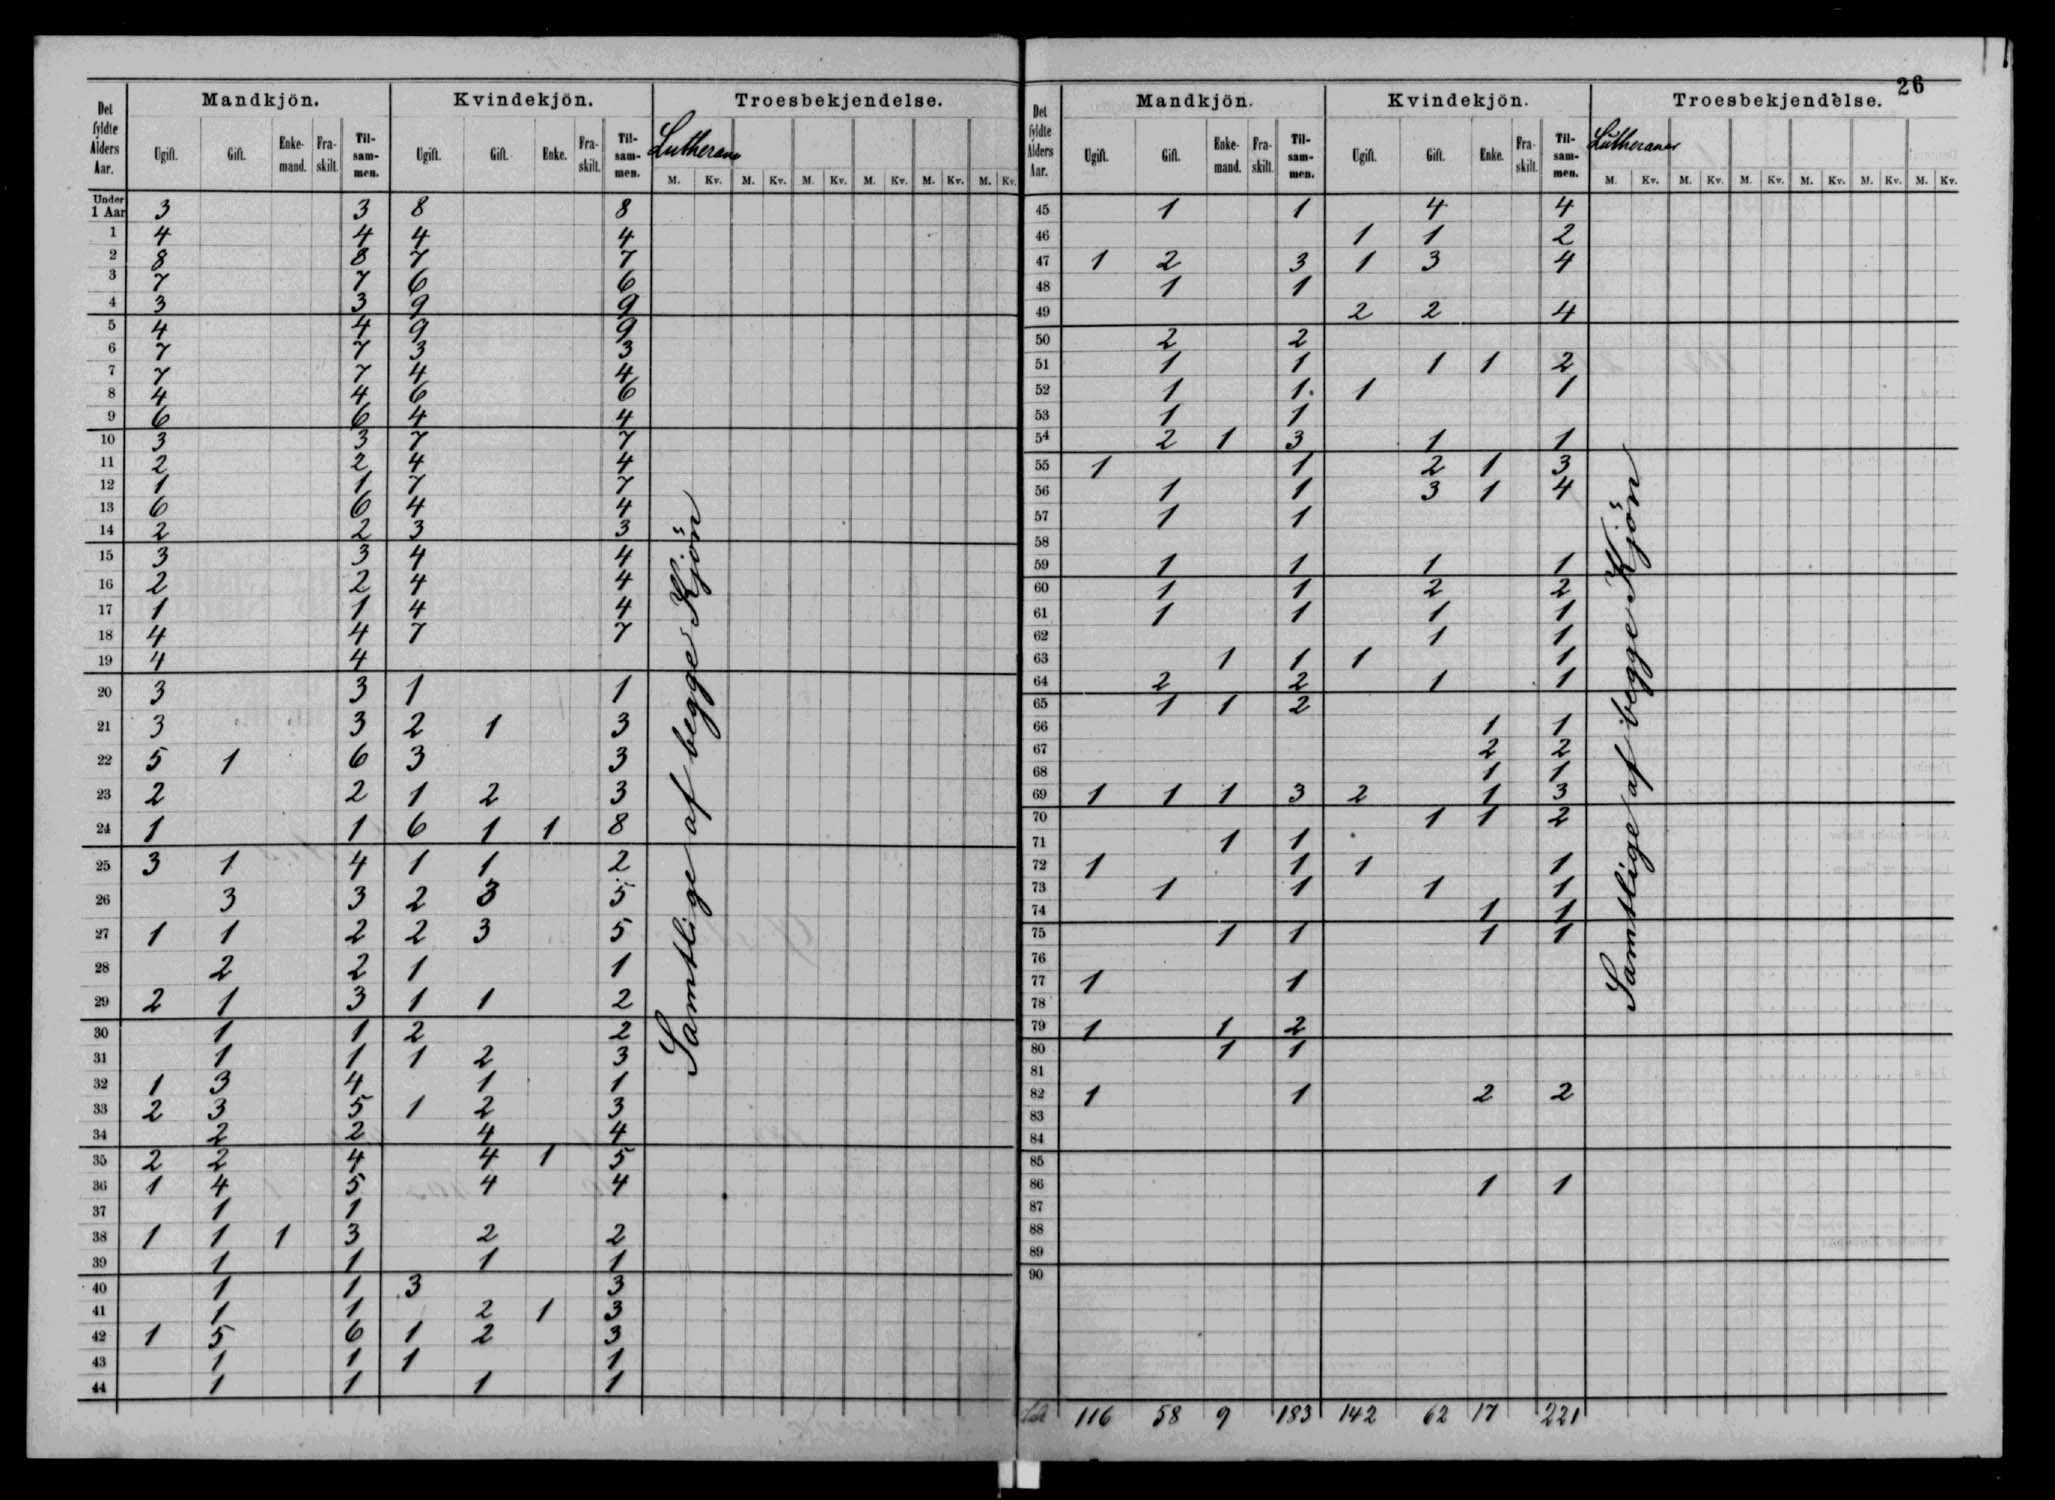 26
Mandkjön. Kvindekjön. Troesbekjendelse.
Det fyldte Alders Aar. Ugift. Gift. Enke-mand. Fra-skilt. Til-sam-men. Ugift. Gift. Enke. Fra-skilt. Til-sam-men. Lutheraner
M. Kv. M. Kv. M. Kv. M. Kv. M. Kv. M. Kv.
Under 1 Aar 3 3 8 8
1 4 4 4 4
2 8 8 7 7
3 7 7 6 6
4 3 3 9 9
5 4 4 9 9
6 7 7 3 3
7 7 7 4 4
8 4 4 6 6
9 6 6 4 4
10 3 3 7 7
11 2 2 4 4
12 1 1 7 7
13 6 6 4 4
14 2 2 3 3
15 3 3 4 4
16 2 2 4 4
17 1 1 4 4
18 4 4 7 7
19 4 4
20 3 3 1 1
21 3 3 2 1 3
22 5 1 6 3 3
23 2 2 1 2 3
24 1 1 6 1 1 8
25 3 1 4 1 1 2
26 3 3 2 3 5
27 1 1 2 2 3 5
28 2 2 1 1
29 2 1 3 1 1 2
30 1 1 2 2
31 1 1 1 2 3
32 1 3 4 1 1
33 2 3 5 1 2 3
34 2 2 4 4
35 2 2 4 4 1 5
36 1 4 5 4 4
37 1 1
38 1 1 1 3 2 2
39 1 1 1 1
40 1 1 3 3
41 1 1 2 1 3
42 1 5 6 1 2 3
43 1 1 1 1
44 1 1 1 1
Samtlige af begge Kjön
Mandkjön. Kvindekjön. Troesbekjendelse.
Det fyldte Alders Aar. Ugift. Gift. Enke-mand. Fra-skilt. Til-sam-men. Ugift. Gift. Enke. Fra-skilt. Til-sam-men. Lutheraner
M. Kv. M. Kv. M. Kv. M. Kv. M. Kv. M. Kv.
45 1 1 4 4
46 1 1 2
47 1 2 3 1 3 4
48 1 1
49 2 2 4
50 2 2
51 1 1 1 1 2
52 1 1. 1 1
53 1 1
54 2 1 3 1 1
55 1 1 2 1 3
56 1 1 3 1 4
57 1 1
58
59 1 1 1 1
60 1 1 2 2
61 1 1 1 1
62 1 1
63 1 1 1 1
64 2 2 1 1
65 1 1 2
66 1 1
67 2 2
68 1 1
69 1 1 1 3 2 1 3
70 1 1 2
71 1 1
72 1 1 1 1
73 1 1 1 1
74 1 1
75 1 1 1 1
76
77 1 1
78
79 1 1 2
80 1 1
81
82 1 1 2 2
83
84
85
86 1 1
87
88
89
90
116 58 9 183 142 62 17 221
Samtlige af begge Kjön